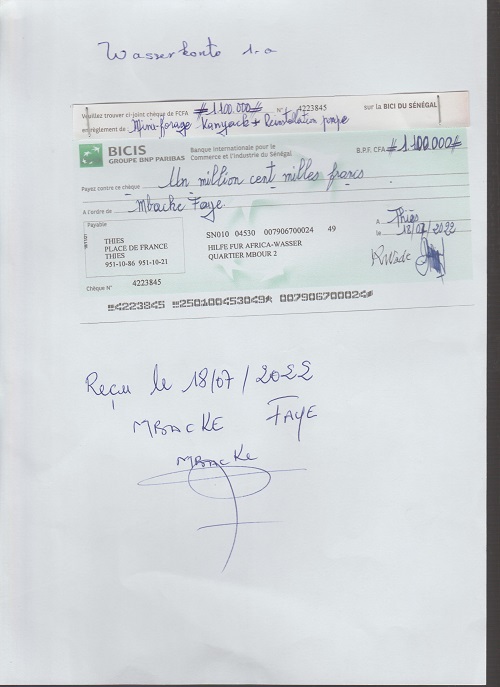 Wasserkonto 1.a
Veuillez trouver ci-joint chèque de FCFA #1.100.000# N° 4223845 sur la BICI DU SÉNÉGAL
en règlement de Mini-forage Kanyack + Reinstallation pompe
BICIS
GROUPE BNP PARIBAS
Banque Internationale pour le
Commerce et l'Industrie du Sénégal
B.P.F. CFA #1.100.000#
Payez contre ce chèque Un million cent milles francs
A l'ordre de Mbacke Faye
Payable
THIES
PLACE DE FRANCE
THIES
951-10-86 951-10-21
SN010 04530 007906700024 49
HILFE FUR AFRICA-WASSER
QUARTIER MBOUR 2
A Thiès
le 18/07/2022
Chèque N° 4223845
4223845 250100453049 007906700024
Reçu le 18/07/2022
MBACKE FAYE
MBACKE